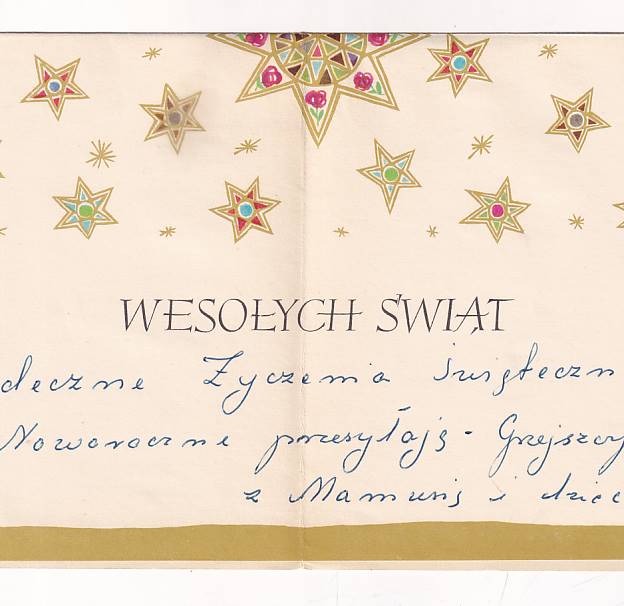 WESOŁYCH ŚWIĄT
deczne Życzenia świąteczn
Noworoczne przesyłają - Grejszczy
z Mamusią i dziec